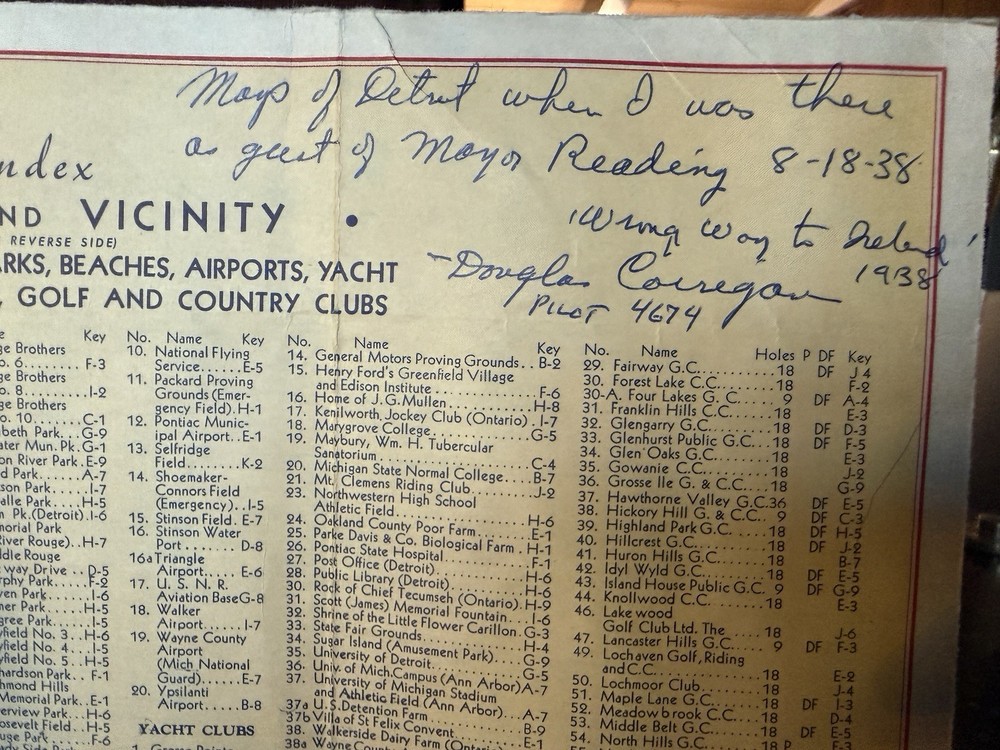 Maps of Detroit when I was there
as guest of Mayor Reading 8-18-38
"Wrong Way to Ireland"
1938
-Douglas Corrigan
PILOT 4674
ndex
ND VICINITY •
REVERSE SIDE)
ARKS, BEACHES, AIRPORTS, YACHT
, GOLF AND COUNTRY CLUBS
e Key
ge Brothers
o. 6....... F-3
ge Brothers
o. 8....... I-2
ge Brothers
o. 10...... C-1
abeth Park... G-9
ater Mun. Pk. G-1
on River Park. E-9
d Park...... A-7
son Park.... I-7
alle Park.... H-5
n Pk.(Detroit). I-6
morial Park
River Rouge).. H-7
ddle Rouge
way Drive .. D-5
rphy Park.... F-2
ven Park.... I-6
mer Park.... H-5
gree Park.... I-5
yfield No. 3.. H-6
yfield No. 4.. I-5
yfield No. 5.. H-5
hardson Park.. F-1
hmond Hills
Memorial Park. E-1
verview Park... H-6
osevelt Field... H-5
uge Park..... F-6
dy Side Park
No. Name Key
10. National Flying
Service..... E-5
11. Packard Proving
Grounds (Emer-
gency Field). H-1
12. Pontiac Munic-
ipal Airport.. E-1
13. Selfridge
Field....... K-2
14. Shoemaker-
Connors Field
(Emergency). I-5
15. Stinson Field. E-7
16. Stinson Water
Port....... D-8
16a Triangle
Airport.... E-6
17. U. S. N. R.
Aviation Base G-8
18. Walker
Airport..... I-7
19. Wayne County
Airport
(Mich National
Guard)..... E-7
20. Ypsilanti
Airport..... B-8
YACHT CLUBS
No. Name Key
14. General Motors Proving Grounds.. B-2
15. Henry Ford's Greenfield Village
and Edison Institute.......... F-6
16. Home of J. G. Mullen.......... H-8
17. Kenilworth Jockey Club (Ontario). I-7
18. Marygrove College............ G-5
19. Maybury, Wm. H. Tubercular
Sanatorium................ C-4
20. Michigan State Normal College... B-7
21. Mt. Clemens Riding Club....... J-2
23. Northwestern High School
Athletic Field.............. H-6
24. Oakland County Poor Farm...... E-1
25. Parke Davis & Co. Biological Farm. H-1
26. Pontiac State Hospital......... F-1
27. Post Office (Detroit).......... H-6
28. Public Library (Detroit)....... H-6
30. Rock of Chief Tecumseh (Ontario). H-9
31. Scott (James) Memorial Fountain. I-6
32. Shrine of the Little Flower Carillon. G-3
33. State Fair Grounds............ H-4
34. Sugar Island (Amusement Park)... G-9
35. University of Detroit.......... G-5
36. Univ. of Mich. Campus (Ann Arbor) A-7
37. University of Michigan Stadium
and Athletic Field (Ann Arbor)... A-7
37a U. S. Detention Farm.......... B-9
37b Villa of St Felix Convent....... E-1
38. Walkerside Dairy Farm (Ontario).
38a Wayne County
No. Name Holes P DF Key
29. Fairway G.C......... 18 DF J 4
30. Forest Lake C.C....... 18 F-2
30-A. Four Lakes G. C..... 9 DF A-4
31. Franklin Hills C.C...... 18 E-3
32. Glengarry G.C........ 18 DF D-3
33. Glenhurst Public G.C... 18 DF F-5
34. Glen Oaks G.C........ 18 E-3
35. Gowanie C.C......... 18 J-2
36. Grosse Ile G. & C.C.... 18 G-9
37. Hawthorne Valley G.C. 36 DF E-5
38. Hickory Hill G. & C.C.. 9 DF C-3
39. Highland Park G.C..... 18 DF H-5
40. Hillcrest G.C......... 18 DF J-2
41. Huron Hills G.C....... 18 B-7
42. Idyl Wyld G.C........ 18 DF E-5
43. Island House Public G.C. 9 DF G-9
44. Knollwood C.C........ 18 E-3
46. Lakewood
Golf Club Ltd. The .... 18 J-6
47. Lancaster Hills G.C..... 9 DF F-3
49. Lochaven Golf, Riding
and C.C............ 18 E-2
50. Lochmoor Club....... 18 J-4
51. Maple Lane G.C....... 18 DF I-3
52. Meadowbrook C.C..... 18 D-4
53. Middle Belt G.C....... 18 DF E-5
54. North Hills G.C....... 18 P F-3